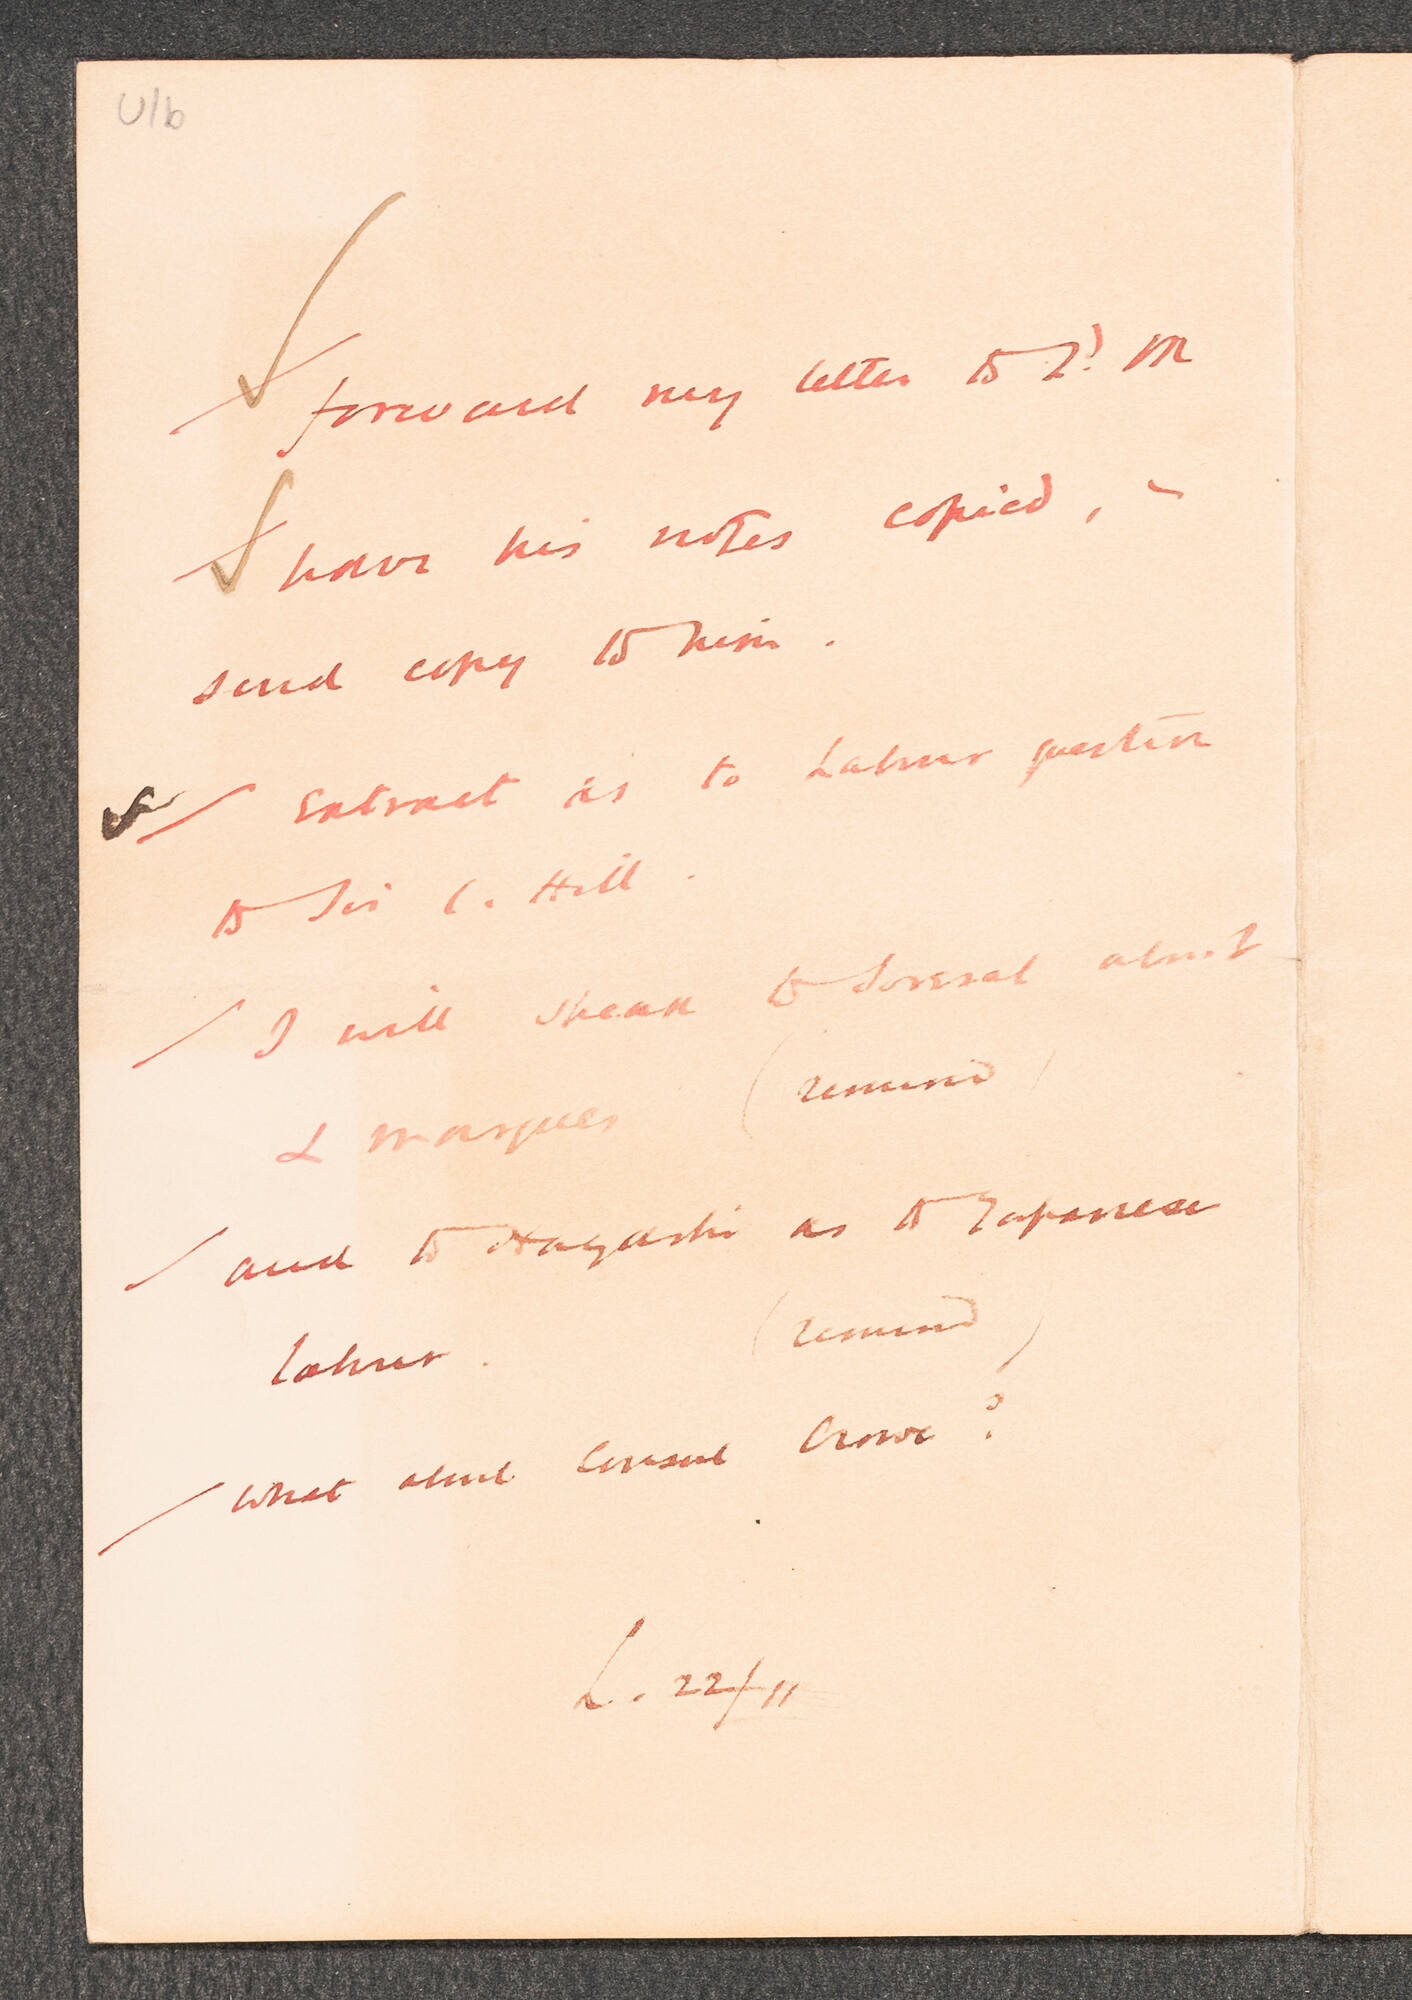 U/b
forward my letter to Ld M
have his notes copied, &
send copy to him.
Extract as to Labour question
to Sir C. Hill.
I will speak to Soveral about
L Marques (remind)
and to Hayashi as to Japanese
labour. (remind)
What about Consul Crowe?
L. 22/11